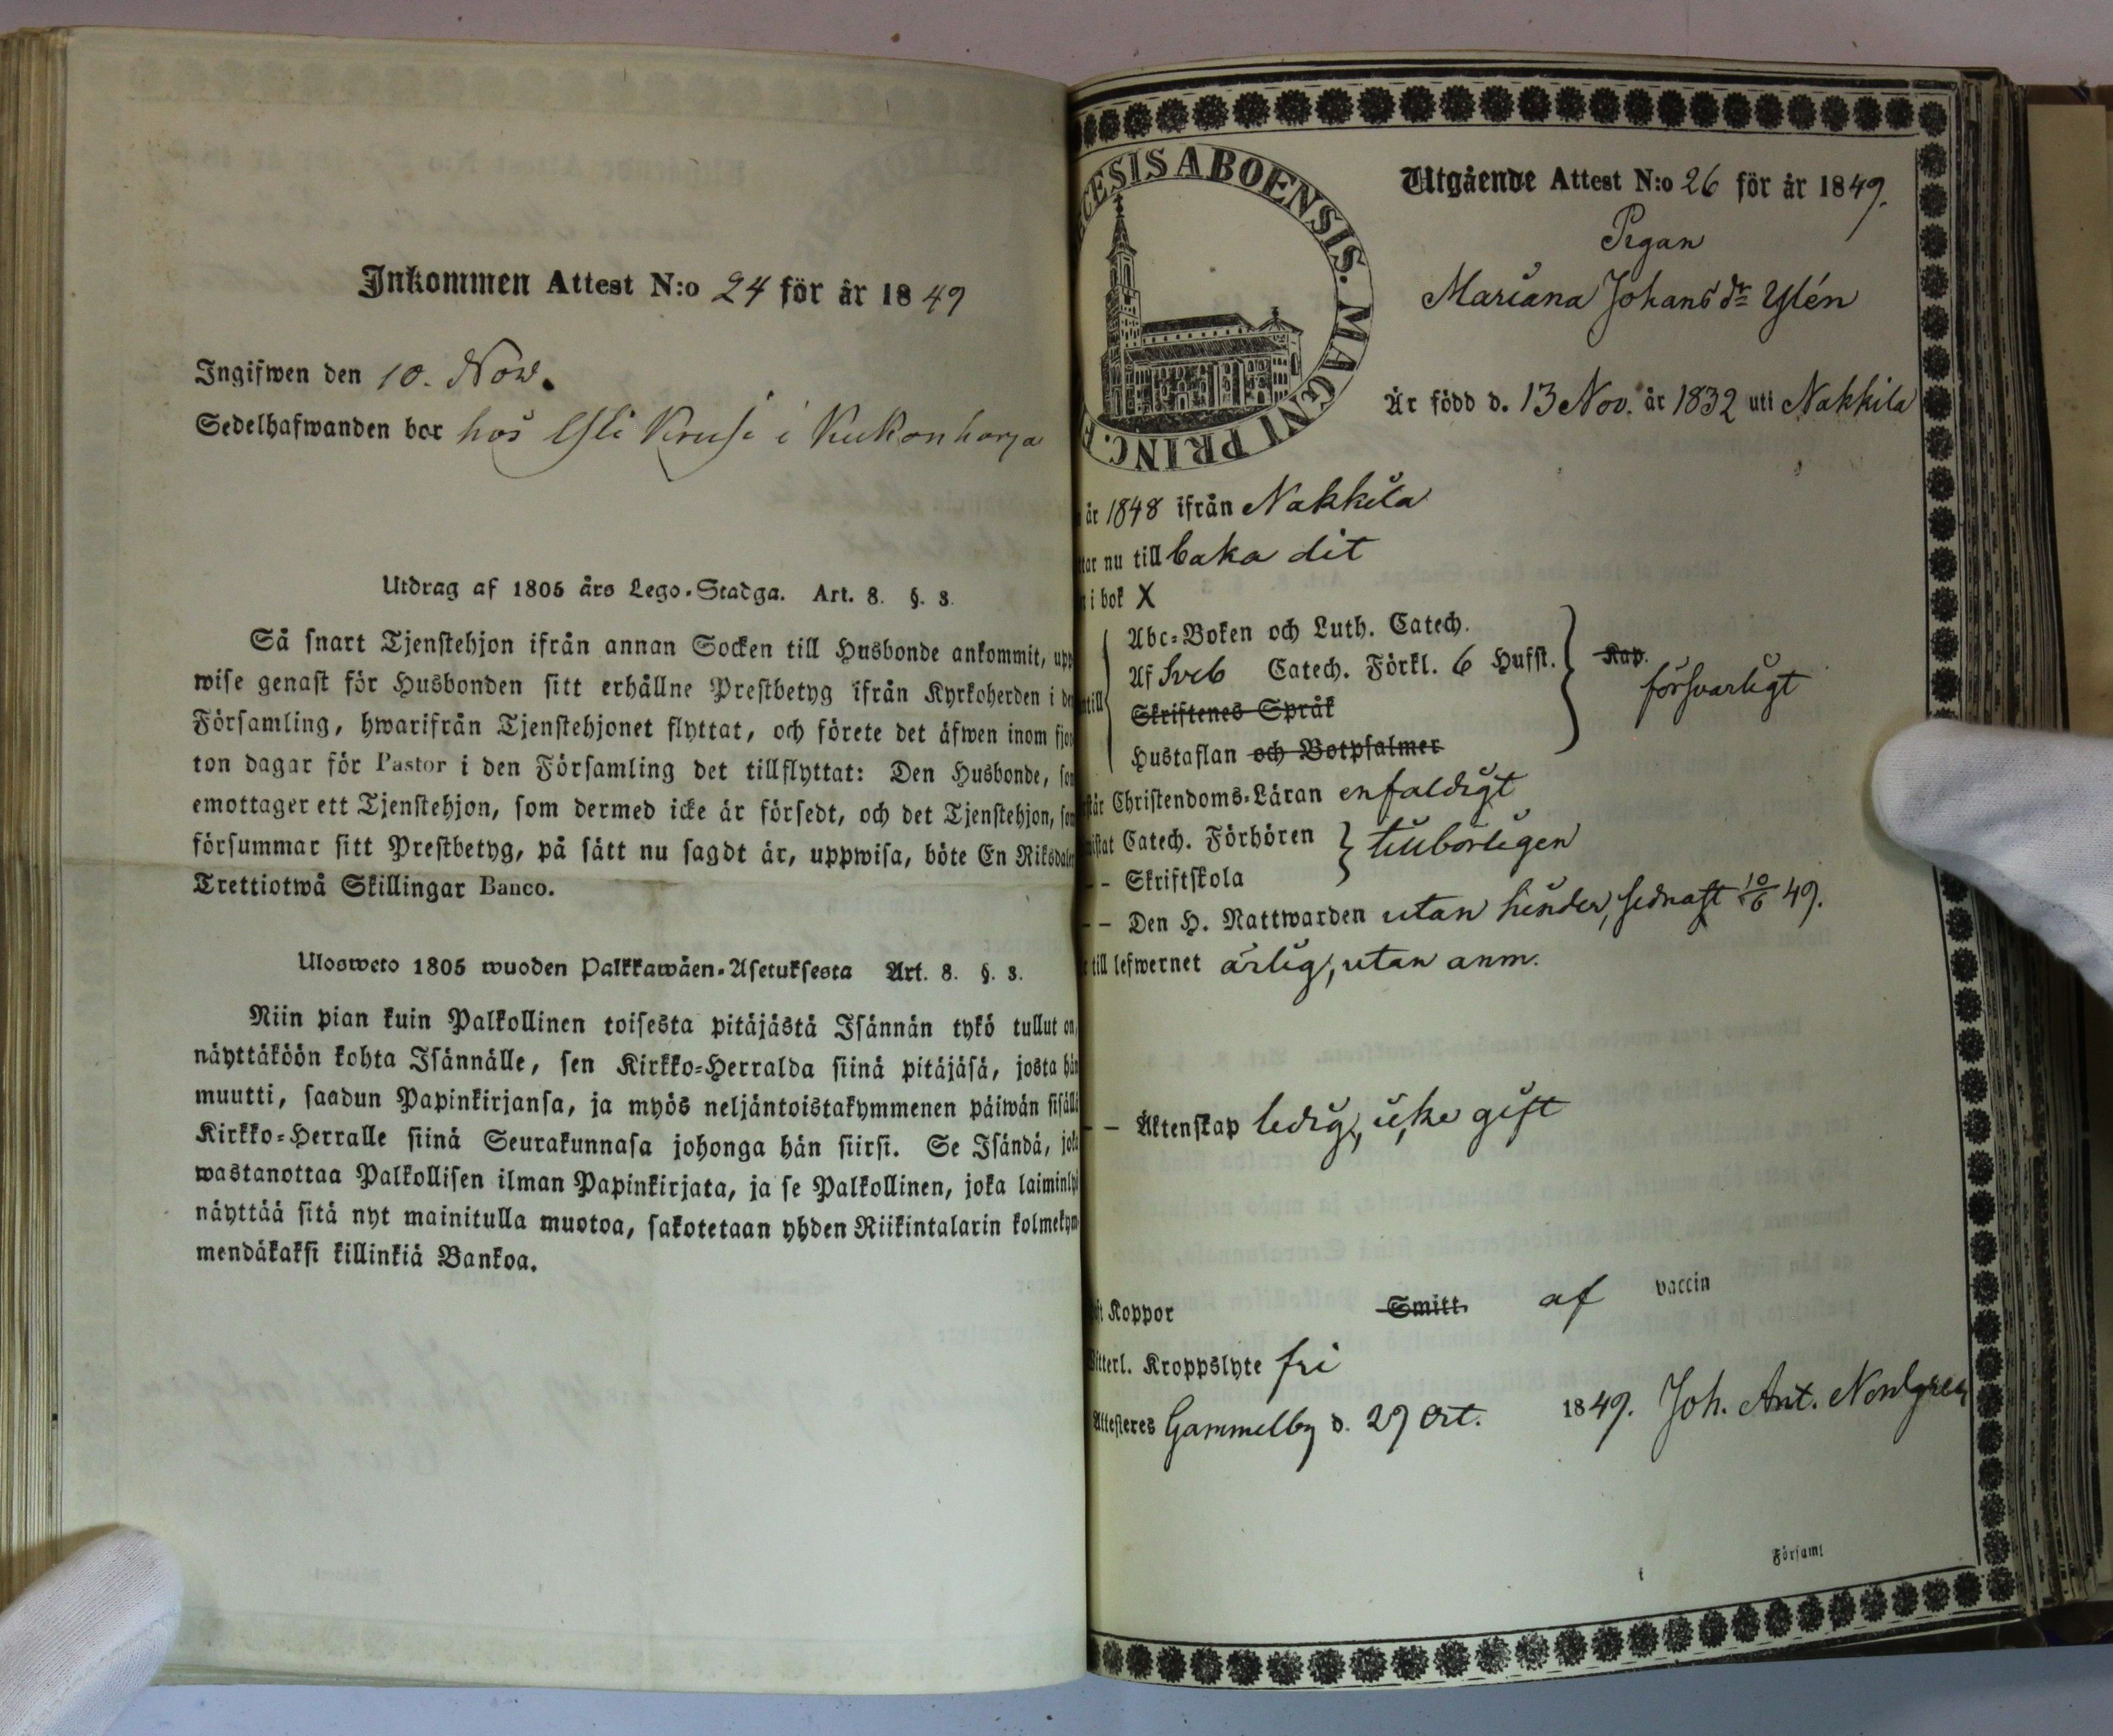 Inkommen Attest N:o 24 för år 1849
Ingifwen den 10. Nov.
Sedelhafwanden bor hos
Utdrag af 1805 års Lego-Stadga. Art. 8. §. 3.
Så snart Tjenstehjon ifrån annan Socken till Husbonde ankommit, upp
wise genast för Husbonden sitt erhållne Prestbetyg ifrån Kyrkoherden i de
Församling, hwarifrån Tjenstehjonet flyttat, och förete det äfwen inom fjor
ton dagar för Pastor i den Församling det tillflyttat: Den Husbonde, so
emottager ett Tjenstehjon, som dermed icke är försedt, och det Tjenstehjon, som
försummar sitt Prestbetyg, på sätt nu sagdt är, uppwisa, böte En Riksdaler
Trettiotwå Skillingar Banco.
Ulosweto 1805 wuoden Palkkawäen-Asetuksesta Art. 8. §. 3.
Niin pian kuin Palkollinen toisesta pitäjästä Isännän tykö tullut on,
näyttäköön kohta Isännälle, sen Kirkko-Herralda siinä pitäjäsä, josta hän
muutti, saadun Papinkirjansa, ja myös neljäntoistakymmenen päiwän sisällä
Kirkko-Herralle siinä Seurakunnasa johonga hän siirsi. Se Isändä, joka
wastanottaa Palkollisen ilman Papinkirjata, ja se Palkollinen, joka laiminlyö
näyttää sitä nyt mainitulla muotoa, sakotetaan yhden Riikintalarin kolmekym
mendäkaksi killinkiä Bankoa.
CESIS ABOENSIS. MAGNI PRINC. F
Utgående Attest N:o 26 för år 1849.
Pigan
Mariana Johansdr Ylén
Är född d. 13 Nov. år 1832 uti Nakkila
år 1848 ifrån Nakkila
tar nu till baka dit
i bok X
Abc-Boken och Luth. Catech.
Af Sveb Catech. Förkl. 6 Hufst. Kap.
försvarligt
Skriftenes Språk
Hustaflan och Botpsalmer
står Christendoms-Läran enfaldigt
wistat Catech. Förhören tillbörligen
- - Skriftskola
- - Den H. Nattwarden utan hinder, sednast 10/6 49.
till lefwernet ärlig, utan anm.
- - Äktenskap ledig, icke gift
Koppor Smitt. af vaccin
Witterl. Kroppslyte fri
Attesteres Gammelby d. 29 Oct. 1849. Joh. Ant. Nordgren
Församl